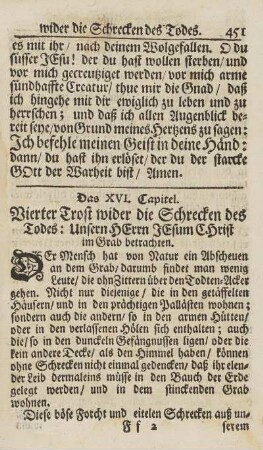 wider die Schrecken des Todes. 451
es mit ihr/ nach deinem Wolgefallen. O du
süsser JEsu! der du hast wollen sterben/ und
vor mich gecreutziget werden/ vor mich arme
sündhaffte Creatur/ thue mir die Gnad/ daß
ich hingehe mit dir ewiglich zu leben und zu
herrschen; und daß ich allen Augenblick be-
reit seye/ von Grund meines Hertzens zu sagen:
Ich befehle meinen Geist in deine Händ:
dann/ du hast ihn erlöset/ der du der starcke
GOtt der Warheit bist/ Amen.
Das XVI. Capitel.
Vierter Trost wider die Schrecken des
Todes: Unsern HErrn JEsum CHrist
im Grab betrachten.
DEr Mensch hat von Natur ein Abscheuen
an dem Grab/ darumb findet man wenig
Leute/ die ohn Zittern über den Todten-Acker
gehen. Nicht nur diejenige/ die in den getäffelten
Häusern/ und in den prächtigen Pallästen wohnen;
sondern auch die andern/ so in den armen Hütten/
oder in den verlassenen Hölen sich enthalten; auch
die/ so in den dunckeln Gefängnussen ligen/ oder die
kein andere Decke/ als den Himmel haben/ können
ohne Schrecken nicht einmal gedencken/ daß ihr elen-
der Leib dermaleins müsse in den Bauch der Erde
gelegt werden/ und in dem stinckenden Grab
wohnen.
Diese böse Forcht und eitelen Schrecken auß un-
F f 2 serem